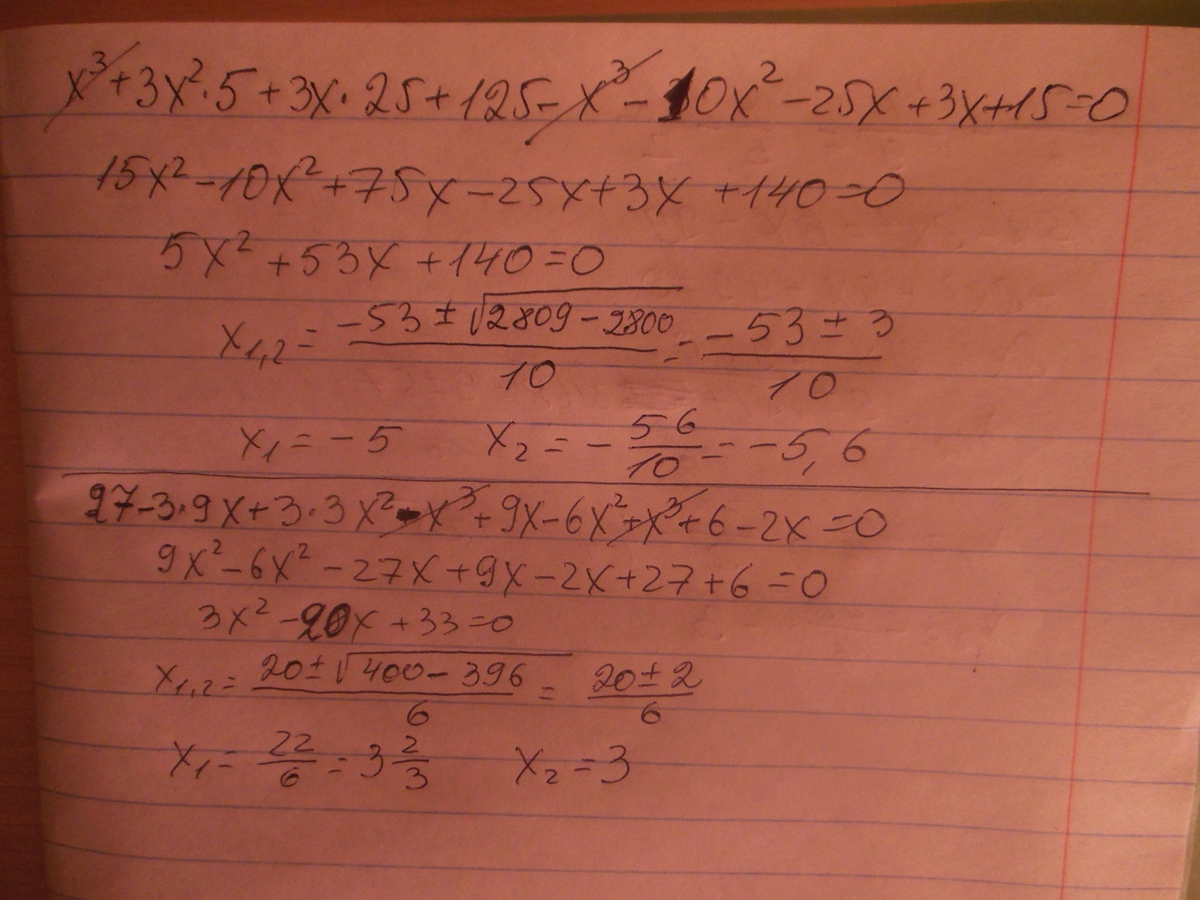 x³+3x²·5+3x·25+125-x³-10x²-25x+3x+15=0
15x²-10x²+75x-25x+3x+140=0
5x²+53x+140=0
x₁,₂ = (-53±√(2809-2800))/10 = (-53±3)/10
x₁=-5 x₂=-56/10=-5,6
27-3·9x+3·3x²-x³+9x-6x²+x³+6-2x=0
9x²-6x²-27x+9x-2x+27+6=0
3x²-20x+33=0
x₁,₂=(20±√(400-396))/6 = (20±2)/6
x₁=22/6=3 2/3 x₂=3